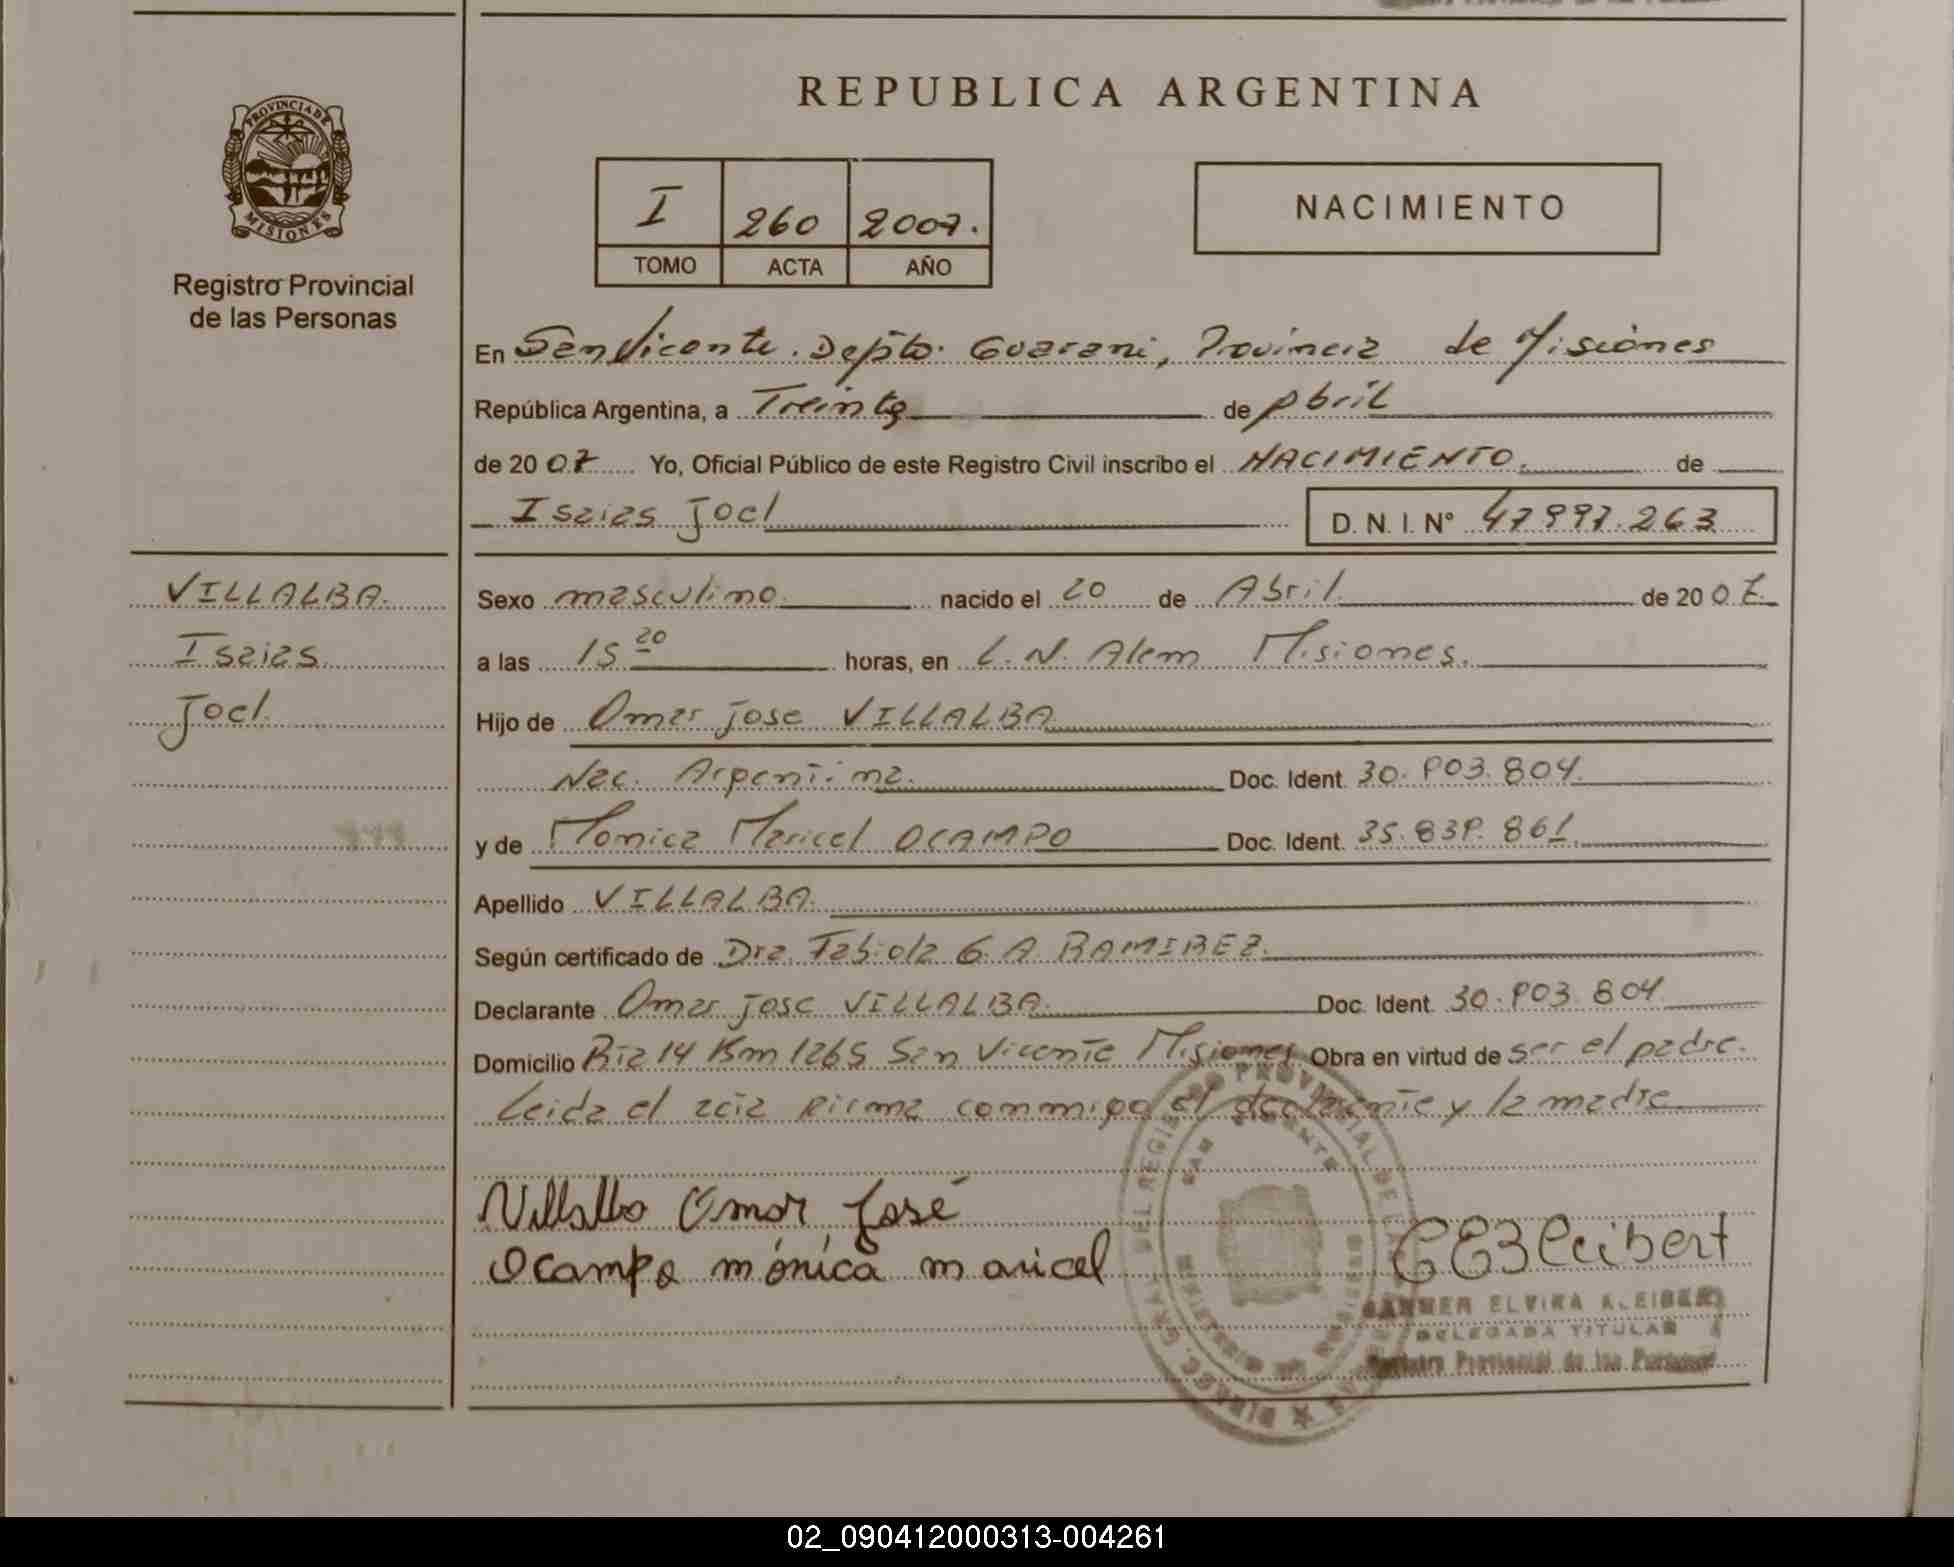 PROVINCIA DE
MISIONES
Registro Provincial
de las Personas
REPUBLICA ARGENTINA
I 260 2007.
TOMO ACTA AÑO
NACIMIENTO
En San Vicente. Depto. Guarani, Provincia de Misiones
República Argentina, a Treinta de Abril
de 2007 Yo, Oficial Público de este Registro Civil inscribo el NACIMIENTO. de
Isaias Joel D. N. I. N° 47997.263
VILLALBA.
Isaias
Joel.
Sexo masculino. nacido el 20 de Abril. de 2007.
a las 15 20 horas, en L. N. Alem Misiones.
Hijo de Omar Jose VILLALBA
Nac. Argentina. Doc. Ident. 30.903.804.
y de Monica Maricel OCAMPO Doc. Ident. 35.839.861.
Apellido VILLALBA.
Según certificado de Dra. Fabiola G. A RAMIREZ.
Declarante Omar Jose VILLALBA. Doc. Ident. 30.903.804
Domicilio Rta 14 Km 1265 San Vicente Misiones Obra en virtud de ser el padre.
Leida el acta firma conmigo el declarante y la madre
Villalba Omar José
Ocampo mónica maricel
ELVIRA KLEIBERT
DELEGADA TITULAR
Registro Provincial de las Personas
02_090412000313-004261